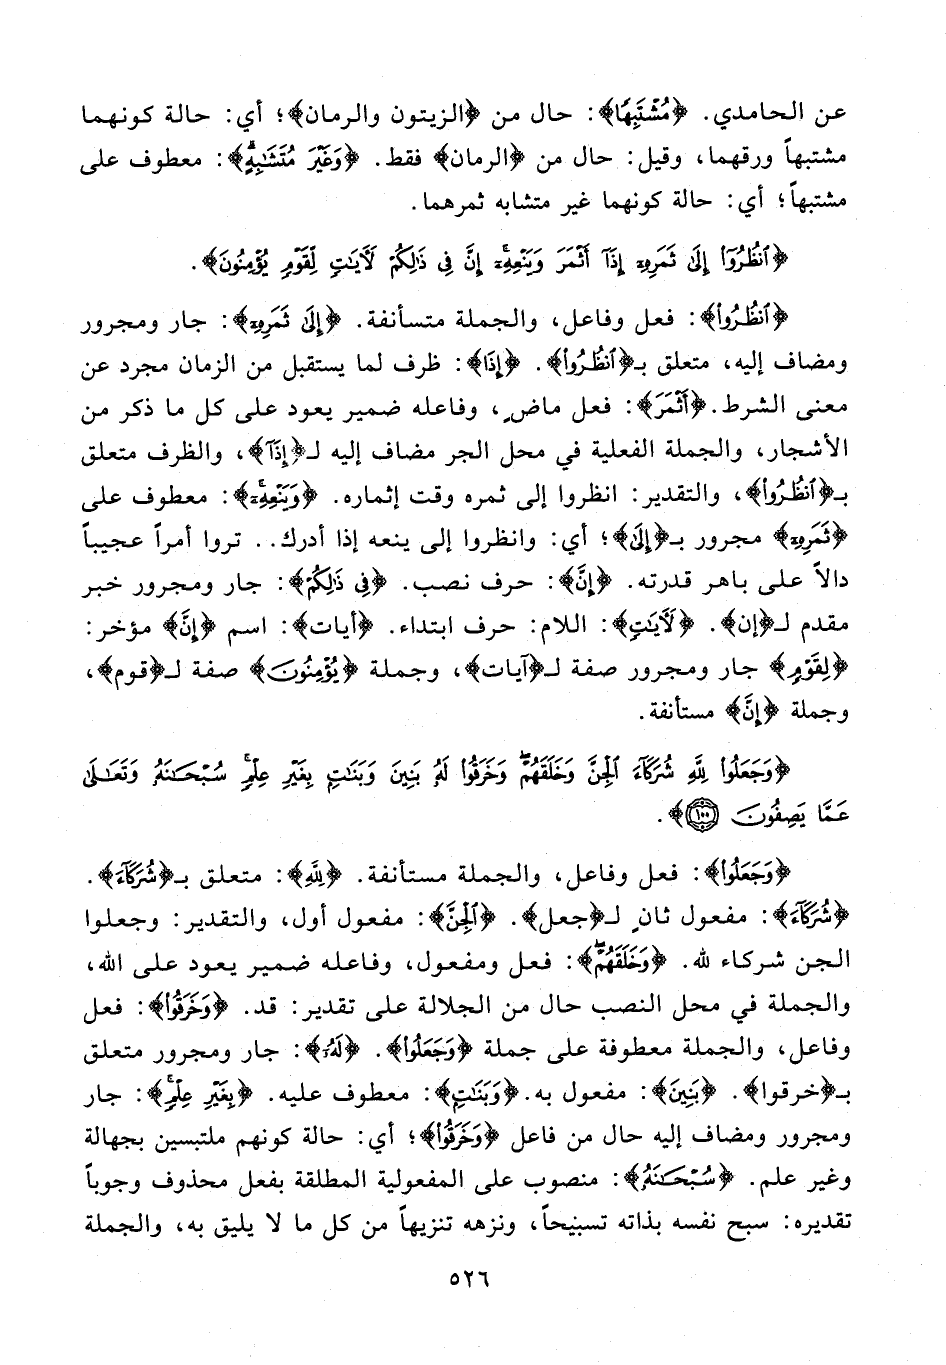 عن الحامدي. ﴿مُشْتَبِهًا﴾: حال من ﴿الزيتون والرمان﴾؛ أي: حالة كونهما
مشتبهاً ورقهما، وقيل: حال من ﴿الرمان﴾ فقط. ﴿وَغَيْرَ مُتَشَٰبِهٍۗ﴾: معطوف على
مشتبهاً؛ أي: حالة كونهما غير متشابه ثمرهما.
﴿ٱنظُرُوٓا۟ إِلَىٰ ثَمَرِهِۦٓ إِذَآ أَثْمَرَ وَيَنْعِهِۦٓۚ إِنَّ فِى ذَٰلِكُمْ لَءَايَٰتٍ لِّقَوْمٍ يُؤْمِنُونَ﴾.
﴿ٱنظُرُوٓا۟﴾: فعل وفاعل، والجملة متسأنفة. ﴿إِلَىٰ ثَمَرِهِۦٓ﴾: جار ومجرور
ومضاف إليه، متعلق بـ﴿ٱنظُرُوٓا۟﴾. ﴿إِذَا﴾: ظرف لما يستقبل من الزمان مجرد عن
معنى الشرط. ﴿أَثْمَرَ﴾: فعل ماضٍ، وفاعله ضمير يعود على كل ما ذكر من
الأشجار، والجملة الفعلية في محل الجر مضاف إليه لـ﴿إِذَآ﴾، والظرف متعلق
بـ﴿ٱنظُرُوٓا۟﴾، والتقدير: انظروا إلى ثمره وقت إثماره. ﴿وَيَنْعِهِۦٓۚ﴾: معطوف على
﴿ثَمَرِهِۦٓ﴾ مجرور بـ﴿إِلَىٰ﴾؛ أي: وانظروا إلى ينعه إذا أدرك.. تروا أمراً عجيباً
دالاً على باهر قدرته. ﴿إِنَّ﴾: حرف نصب. ﴿فِى ذَٰلِكُمْ﴾: جار ومجرور خبر
مقدم لـ﴿إن﴾. ﴿لَءَايَٰتٍ﴾: اللام: حرف ابتداء. ﴿أيات﴾: اسم ﴿إِنَّ﴾ مؤخر:
﴿لِقَوْمٍ﴾ جار ومجرور صفة لـ﴿آيات﴾، وجملة ﴿يُؤْمِنُونَ﴾ صفة لـ﴿قوم﴾،
وجملة ﴿إِنَّ﴾ مستأنفة.
﴿وَجَعَلُوا۟ لِلَّهِ شُرَكَآءَ ٱلْجِنَّ وَخَلَقَهُمْۖ وَخَرَقُوا۟ لَهُۥ بَنِينَ وَبَنَٰتٍۭ بِغَيْرِ عِلْمٍۚ سُبْحَٰنَهُۥ وَتَعَٰلَىٰ
عَمَّا يَصِفُونَ ١٠٠﴾.
﴿وَجَعَلُوا۟﴾: فعل وفاعل، والجملة مستأنفة. ﴿لِلَّهِ﴾: متعلق بـ﴿شُرَكَآءَ﴾.
﴿شُرَكَآءَ﴾: مفعول ثانٍ لـ﴿جعل﴾. ﴿ٱلْجِنَّ﴾: مفعول أول، والتقدير: وجعلوا
الجن شركاء لله. ﴿وَخَلَقَهُمْۖ﴾: فعل ومفعول، وفاعله ضمير يعود على الله،
والجملة في محل النصب حال من الجلالة على تقدير: قد. ﴿وَخَرَقُوا۟﴾: فعل
وفاعل، والجملة معطوفة على جملة ﴿وَجَعَلُوا۟﴾. ﴿لَهُۥ﴾: جار ومجرور متعلق
بـ﴿خرقوا﴾. ﴿بَنِينَ﴾: مفعول به. ﴿وَبَنَٰتٍۭ﴾: معطوف عليه. ﴿بِغَيْرِ عِلْمٍۚ﴾: جار
ومجرور ومضاف إليه حال من فاعل ﴿وَخَرَقُوا۟﴾؛ أي: حالة كونهم ملتبسين بجهالة
وغير علم. ﴿سُبْحَٰنَهُۥ﴾: منصوب على المفعولية المطلقة بفعل محذوف وجوباً
تقديره: سبح نفسه بذاته تسبيحاً، ونزهه تنزيهاً من كل ما لا يليق به، والجملة
٥٢٦